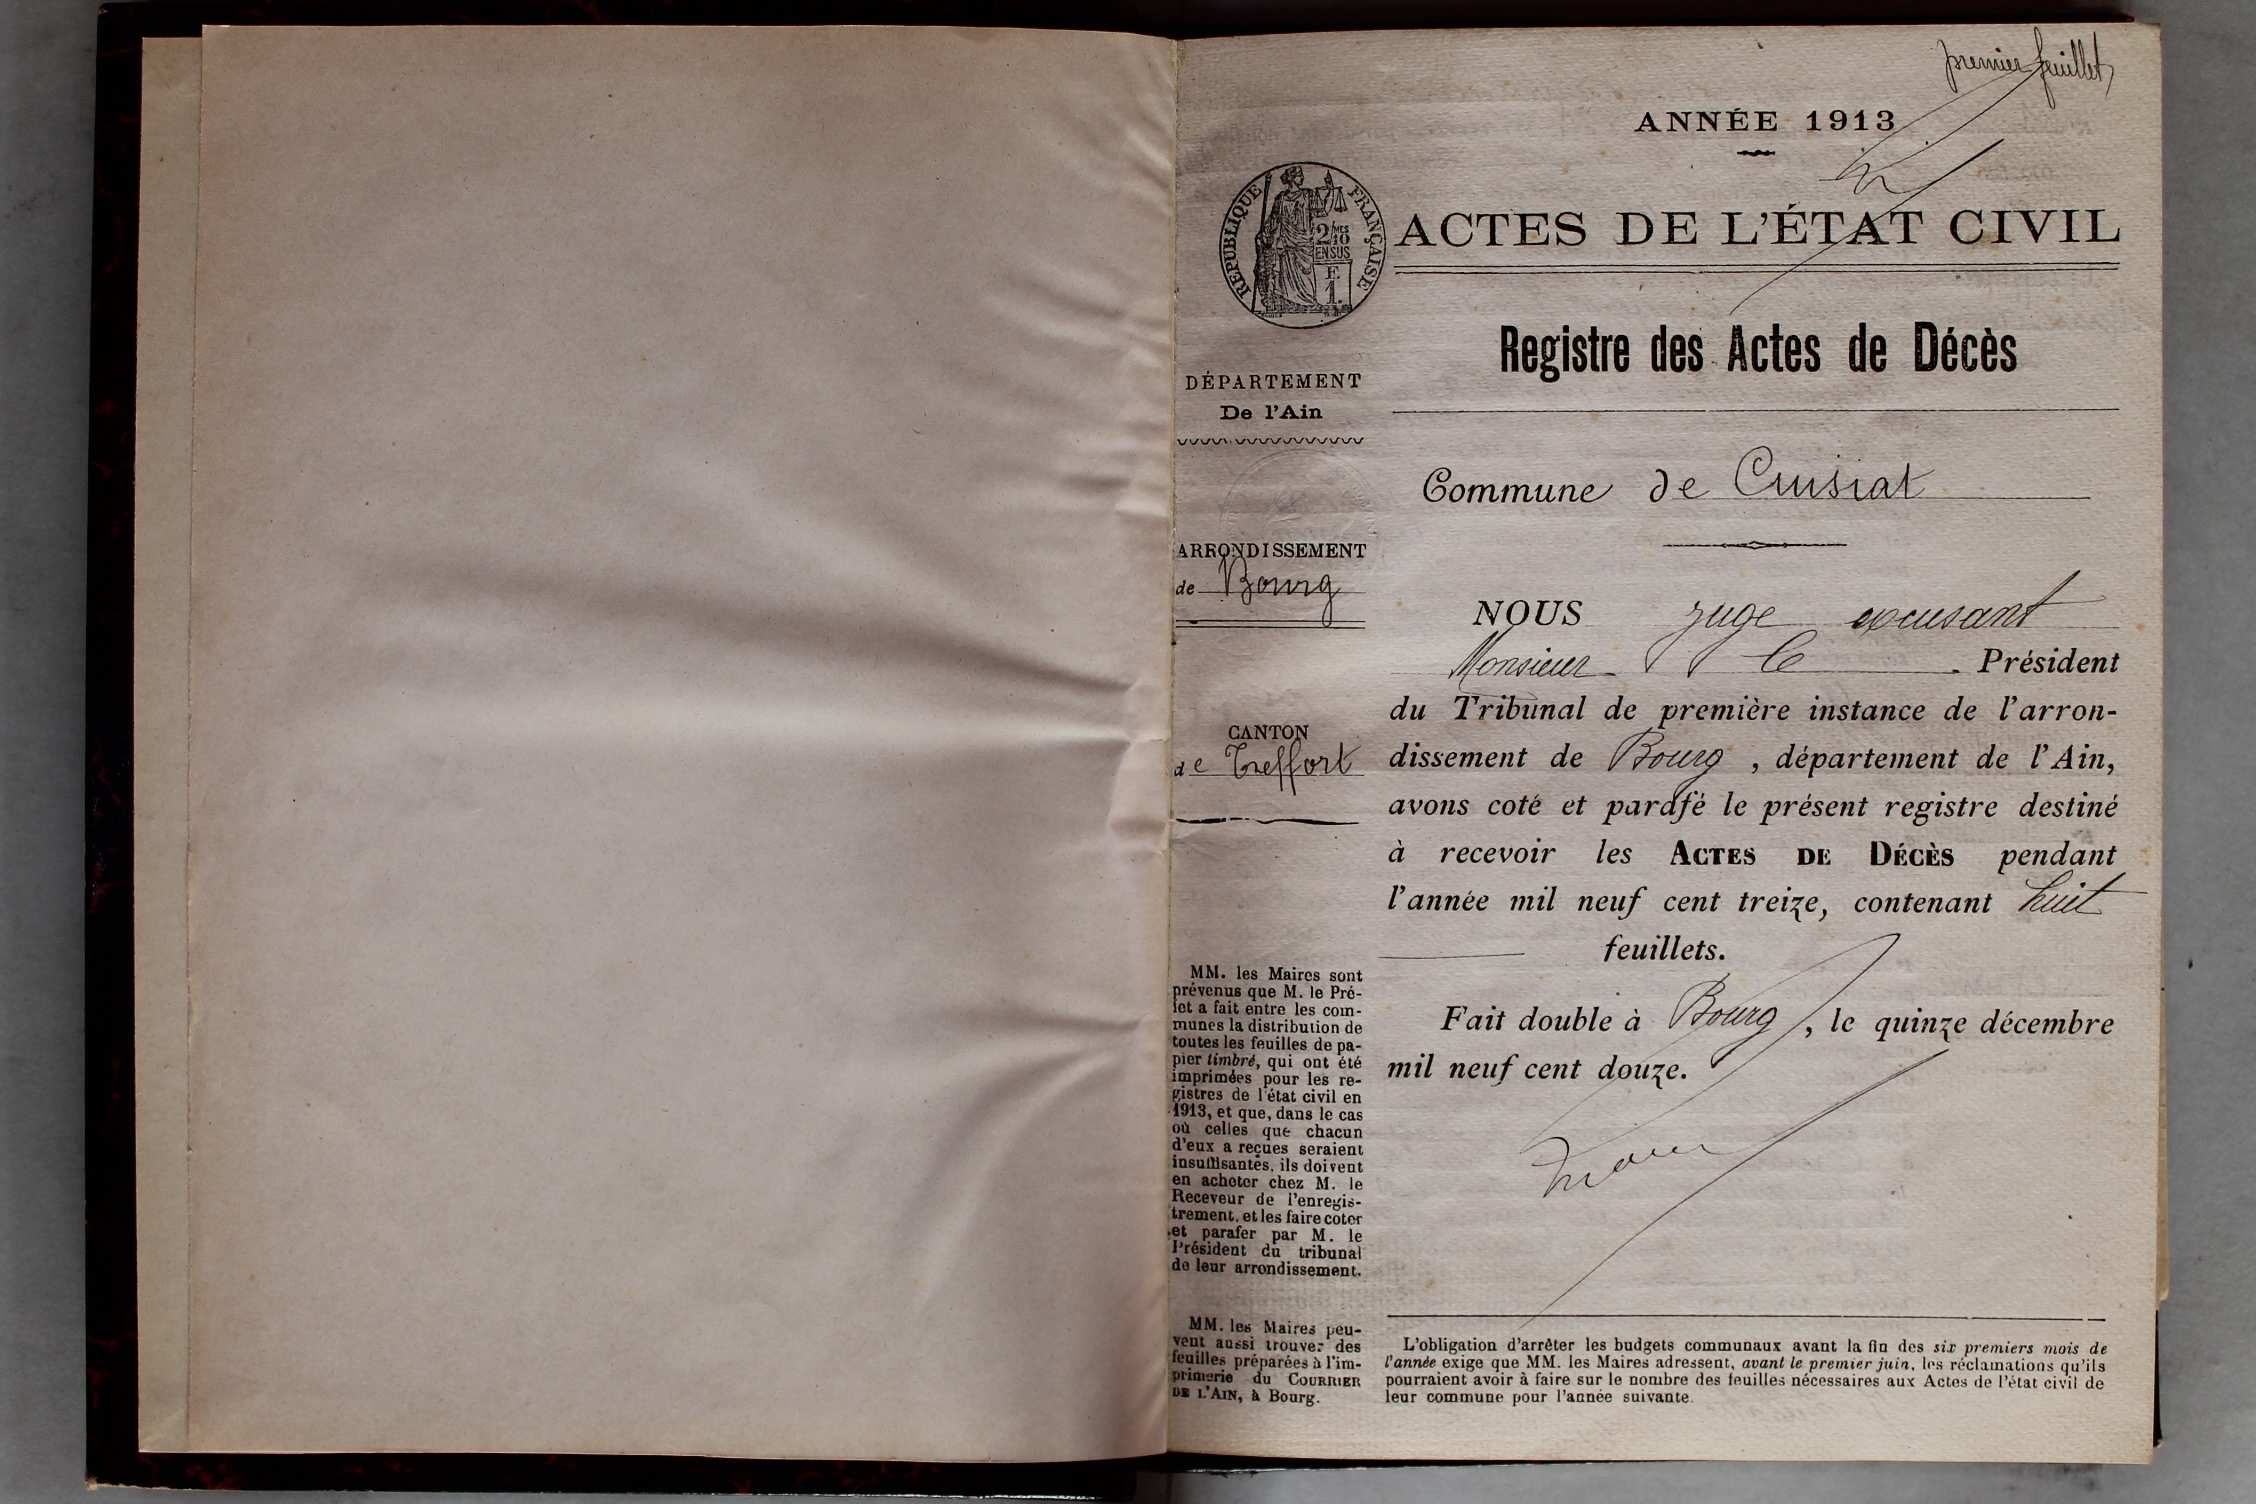 premier feuillet
ANNÉE 1913
RÉPUBLIQUE FRANÇAISE
2/10 MES
EN SUS
F.
1.
ACTES DE L'ÉTAT CIVIL
Registre des Actes de Décès
DÉPARTEMENT
De l'Ain
Commune de Cuisiat
ARRONDISSEMENT
de Bourg
CANTON
de Treffort
NOUS juge excusant
Monsieur le Président
du Tribunal de première instance de l'arron-
dissement de Bourg, département de l'Ain,
avons coté et parafé le présent registre destiné
à recevoir les ACTES DE DÉCÈS pendant
l'année mil neuf cent treize, contenant huit
feuillets.
Fait double à Bourg, le quinze décembre
mil neuf cent douze.
MM. les Maires sont
prévenus que M. le Pré-
fet a fait entre les com-
munes la distribution de
toutes les feuilles de pa-
pier timbré, qui ont été
imprimées pour les re-
gistres de l'état civil en
1913, et que, dans le cas
où celles que chacun
d'eux a reçues seraient
insuffisantes, ils doivent
en acheter chez M. le
Receveur de l'enregis-
trement, et les faire coter
et parafer par M. le
Président du tribunal
de leur arrondissement.
MM. les Maires peu-
vent aussi trouver des
feuilles préparées à l'im-
primerie du COURRIER
DE L'AIN, à Bourg.
L'obligation d'arrêter les budgets communaux avant la fin des six premiers mois de
l'année exige que MM. les Maires adressent, avant le premier juin, les réclamations qu'ils
pourraient avoir à faire sur le nombre des feuilles nécessaires aux Actes de l'état civil de
leur commune pour l'année suivante.